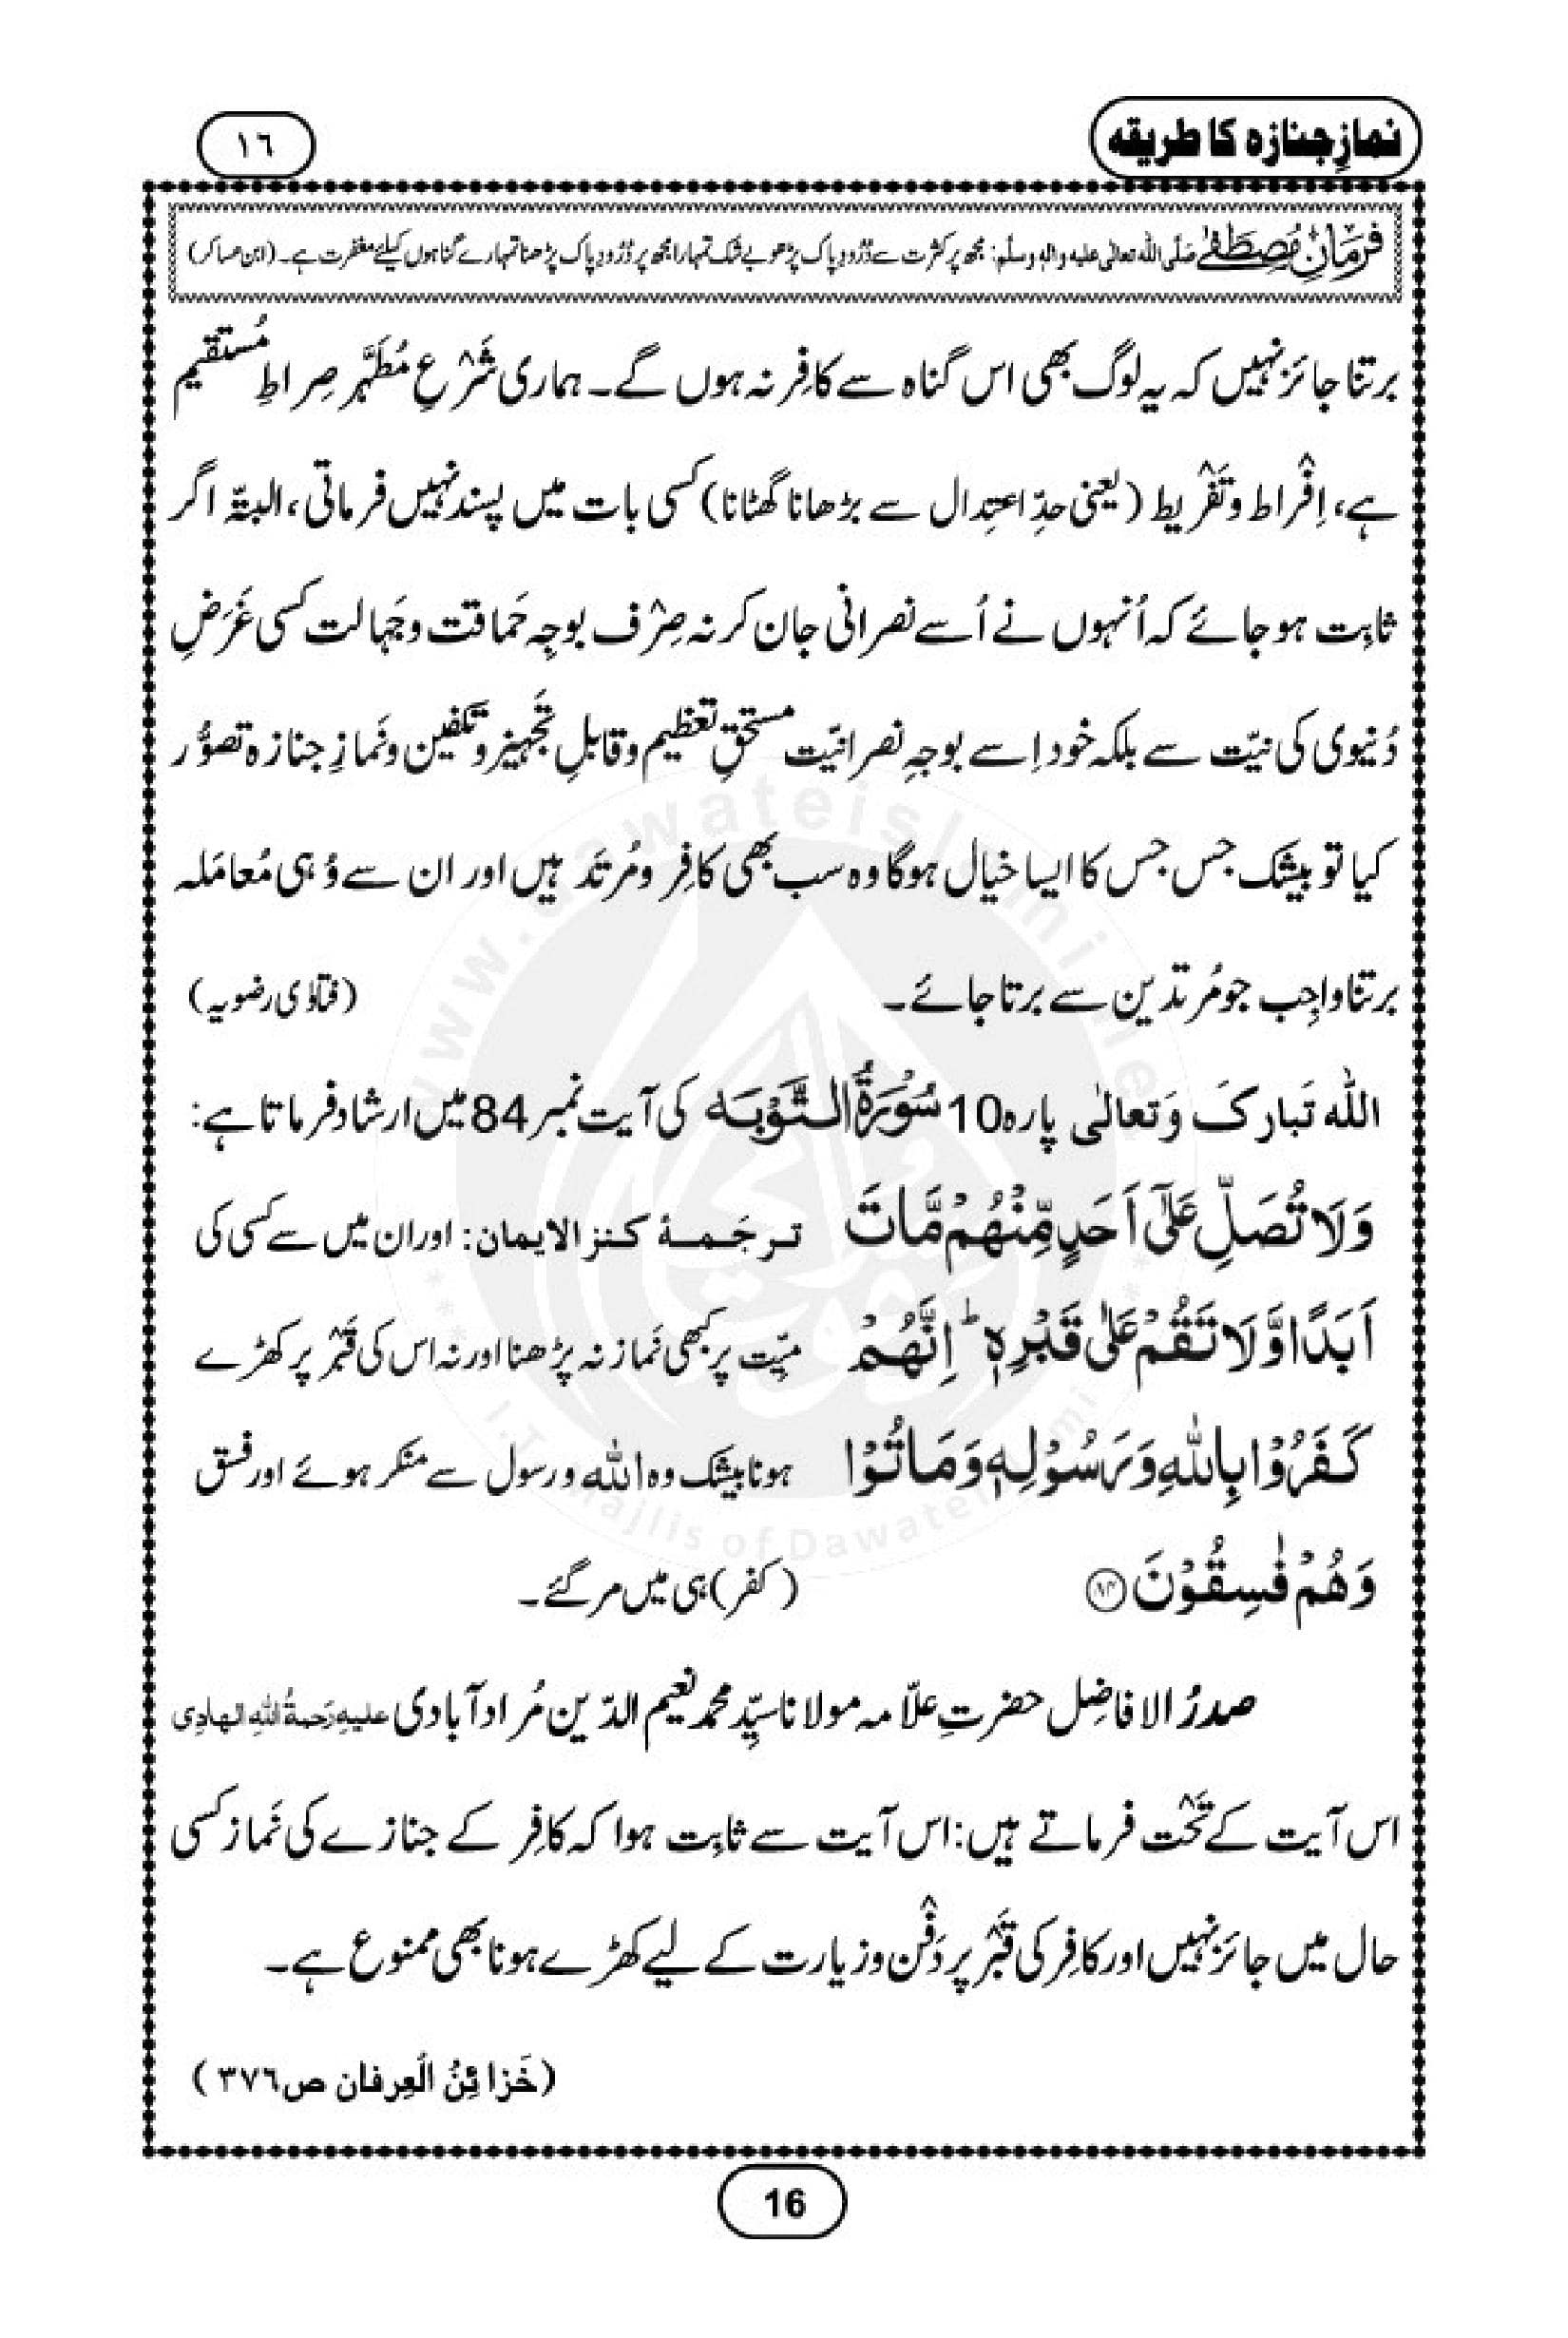 نمازِ جنازہ کا طریقہ
١٦
فرمانِ مصطَفٰے صَلَّی اللہ تعالٰی علیہ واٰلہٖ وسلَّم: مجھ پر کثرت سے دُرُودِ پاک پڑھو بے شک تمہارا مجھ پر دُرُودِ پاک پڑھنا تمہارے گناہوں کیلئے مغفرت ہے۔ (ابن عساکر)
برتنا جائز نہیں کہ یہ لوگ بھی اس گناہ سے کافِر نہ ہوں گے۔ ہماری شَرْعِ مُطَہَّر صِراطِ مُستقیم
ہے، اِفْراط و تَفْرِیط (یعنی حدِّ اعتِدال سے بڑھانا گھٹانا) کسی بات میں پسند نہیں فرماتی، البتّہ اگر
ثابِت ہو جائے کہ اُنہوں نے اُسے نصرانی جان کر نہ صِرْف بوجِہ حَماقت و جَہالت کسی غَرَضِ
دُنیوی کی نیّت سے بلکہ خود اِسے بوجہِ نصرانیّت مستحقِ تعظیم و قابلِ تَجہیز و تکفین و نَمازِ جنازہ تصوُّر
کیا تو بیشک جس جس کا ایسا خیال ہوگا وہ سب بھی کافِر و مُرتَد ہیں اور ان سے وُہی مُعامَلہ
برتنا واجِب جو مُرتدّین سے برتا جائے۔ (فتاوٰی رضویہ)
اللہ تَبارَکَ وَتعالٰی پارہ 10 سُوْرَۃُ التَّوْبَہ کی آیت نمبر 84 میں ارشاد فرماتا ہے:
وَلَا تُصَلِّ عَلٰۤی اَحَدٍ مِّنْهُمْ مَّاتَ ترجَمۂ کنزالایمان: اور ان میں سے کسی کی
اَبَدًا وَّلَا تَقُمْ عَلٰی قَبْرِهٖ ؕ اِنَّهُمْ میِّت پر کبھی نَماز نہ پڑھنا اور نہ اس کی قَبْر پر کھڑے
کَفَرُوْا بِاللّٰهِ وَرَسُوْلِهٖ وَمَاتُوْا ہونا بیشک وہ اللہ و رسول سے منکر ہوئے اور فسق
وَهُمْ فٰسِقُوْنَ ﴿۸۴﴾ (کفر) ہی میں مر گئے۔
صدرُ الافاضِل حضرتِ علّامہ مولانا سیِّد محمد نعیم الدّین مُراد آبادی علیہِ رَحمۃُ اللہِ الہادِی
اس آیت کے تَحْت فرماتے ہیں: اس آیت سے ثابِت ہوا کہ کافِر کے جنازے کی نَماز کسی
حال میں جائز نہیں اور کافِر کی قَبْر پر دَفْن و زیارت کے لیے کھڑے ہونا بھی ممنوع ہے۔
(خَزائِنُ الْعِرفان ص٣٧٦)
16
www.dawateislami.net
I.T Majlis of DawateIslami